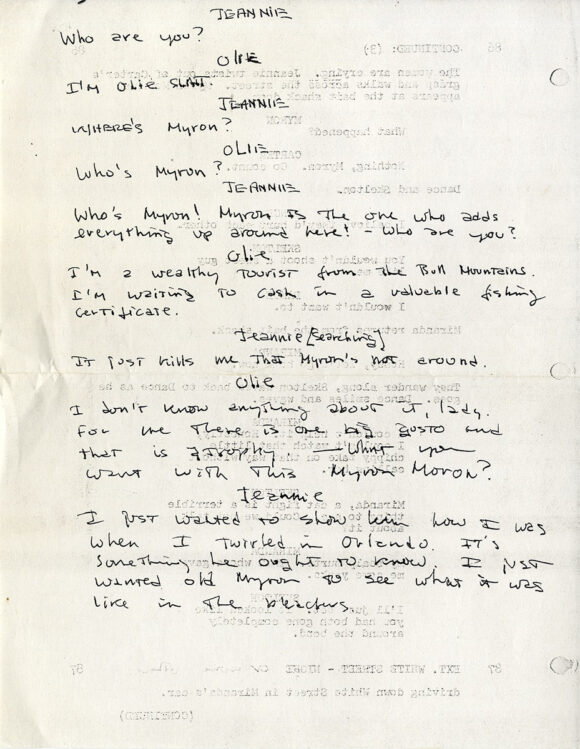 JEANNIE
Who are you?
Olie
I'm Olie Slatt.
JEANNIE
WHERE'S Myron?
OLIE
Who's Myron?
JEANNIE
Who's Myron! Myron IS The one who adds
everything up around here! - Who are you?
Olie
I'm a wealthy Tourist from The Bull Mountains.
I'm waiting To cash in a valuable fishing
certificate.
Jeannie [searching]
IT just kills me That Myron's not around.
Olie
I don't know anything about it, lady.
For me There is one big gusto and
that is a Trophy. — What you
want with This Myron Moron?
Jeannie
I just wanted to show him how I was
when I Twirled in Orlando. IT's
something he ought to know. I just
wanted old Myron To see what it was
like in The bleachers.